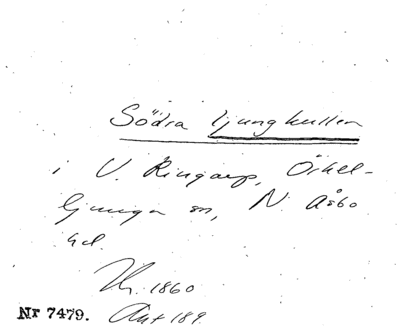 Södra ljungkullen
i V. Ringarp, Örkel-
ljunga sn, N. Åsbo
hd.
Hr. 1860
Nr 7479. Ant 189